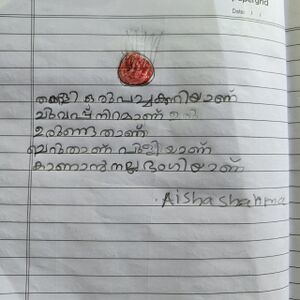 papergrid
Date: / /
തക്കാളി ഒരു പച്ചക്കറിയാണ്
ചുവപ്പ് നിറമാണ്
ഉരുണ്ടതാണ്
കാണാൻ നല്ല ഭംഗിയാണ്
Aisha shahma